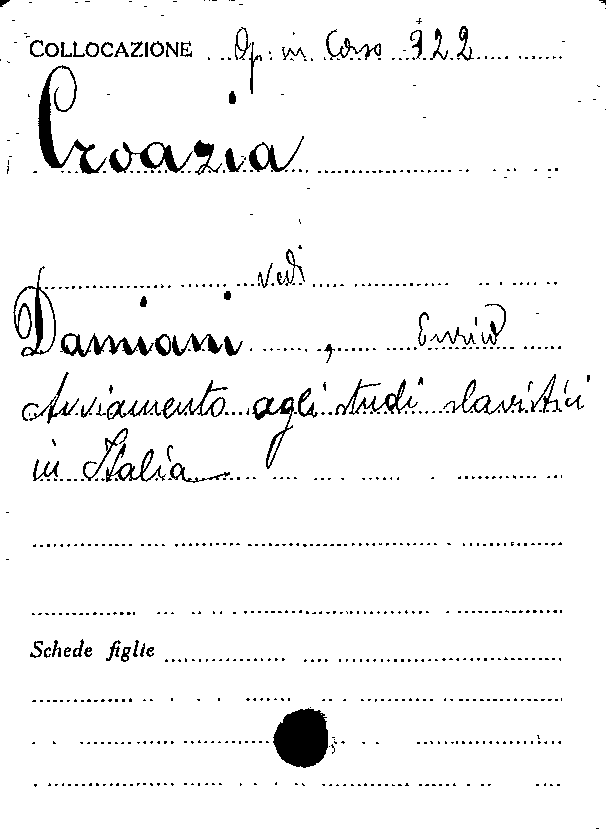 COLLOCAZIONE Op. in Corso 922
Croazia
vedi
Damiani, Enrico
Avviamento agli studi slavistici
in Italia
Schede figlie